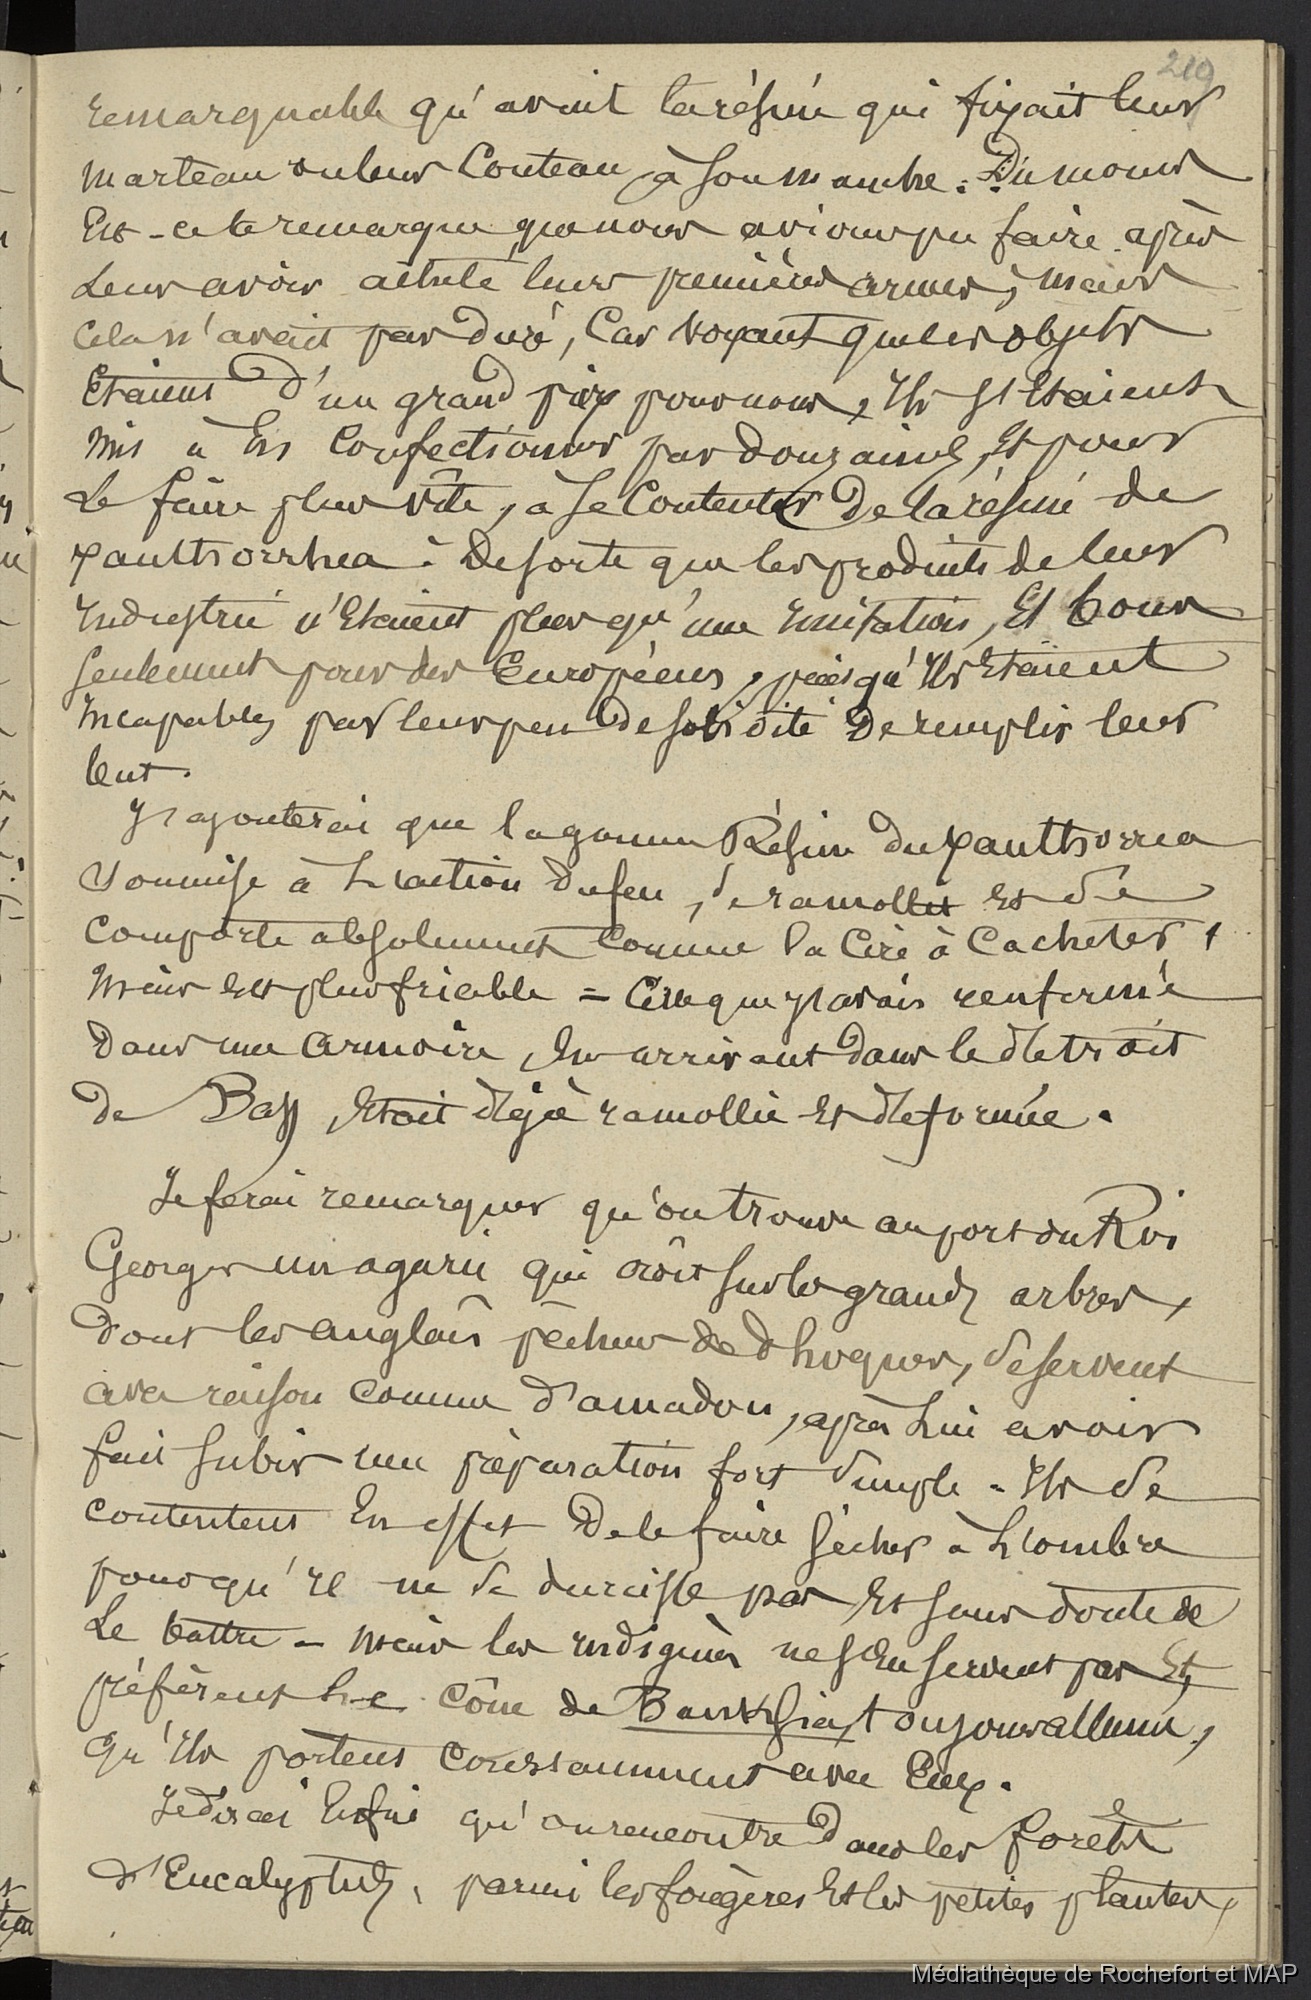 219
remarquable qu'avait la résine qui fixait leur
marteau ou leur Couteau à son manche. Du moins
Est-ce la remarque que nous avions pu faire après
Leur avoir acheté leurs premières armes, mais
Cela n'avait pas duré, Car voyant que les objets
Etaient d'un grand prix pour nous, Ils s'étaient
mis à En Confectionner par douzaines, Et pour
Le faire plus vite, à se Contenter De la résine de
xanthorrhea. De sorte que les produits de leur
Industrie n'Etaient plus qu'une Imitation, Et bons
seulement pour des Européens, puisqu'Ils Etaient
Incapables par leur peu de solidité De remplir leur
but.
J'ajouterai que la gomme Résine du xanthorrea
soumise à L'action du feu, se ramollit Et se
comporte absolument Comme la Cire à Cacheter,
mais Est plus friable = Celle que j'avais renfermée
Dans une armoire, En arrivant dans le détroit
de Bass, Etait déjà ramollie Et déformée.
Je ferai remarquer qu'on trouve au port du Roi
Georges un agaric qui croît sur les grands arbres,
Dont les anglais pêcheurs de Phoques, se servent
avec raison comme d'amadou, après Lui avoir
fait subir une préparation fort simple - Ils se
contentent En effet De le faire sécher à L'ombre
pour qu'Il ne se durcisse pas Et sans doute de
Le battre - mais les Indigènes ne s'En servent pas Et
préfèrent Le cône de Banksia, toujours allumé,
qu'Ils portent constamment avec Eux.
Je dirai Enfin qu'on rencontre Dans les forêts
d'Eucalyptus, parmi les fougères Et les petites plantes,
Médiathèque de Rochefort et MAP